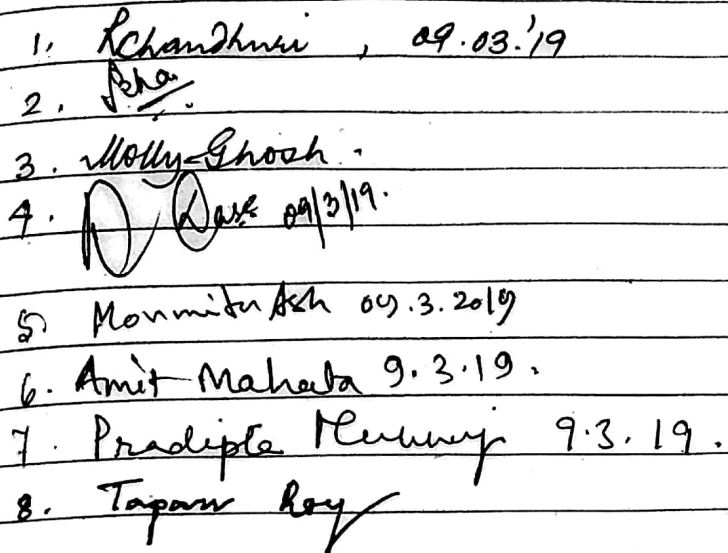 1. RChaudhuri, 09.03.'19
2.
3. Molly Ghosh.
4. D Das 09/3/19.
5 Monmita Ash 09.3.2019
6. Amit Mahata 9.3.19.
7. Pradipta 9.3.19.
8. Tapan Roy